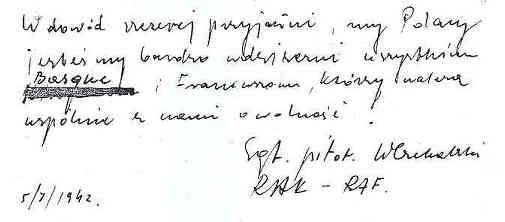 W dowód szczerej przyjaźni, my Polacy
jesteśmy bardzo wdzięczni wszystkim
Basque i Francuzom, którzy walczą
wspólnie z nami o wolność.
Sgt. pilot.
RAF.
5/7/1942.